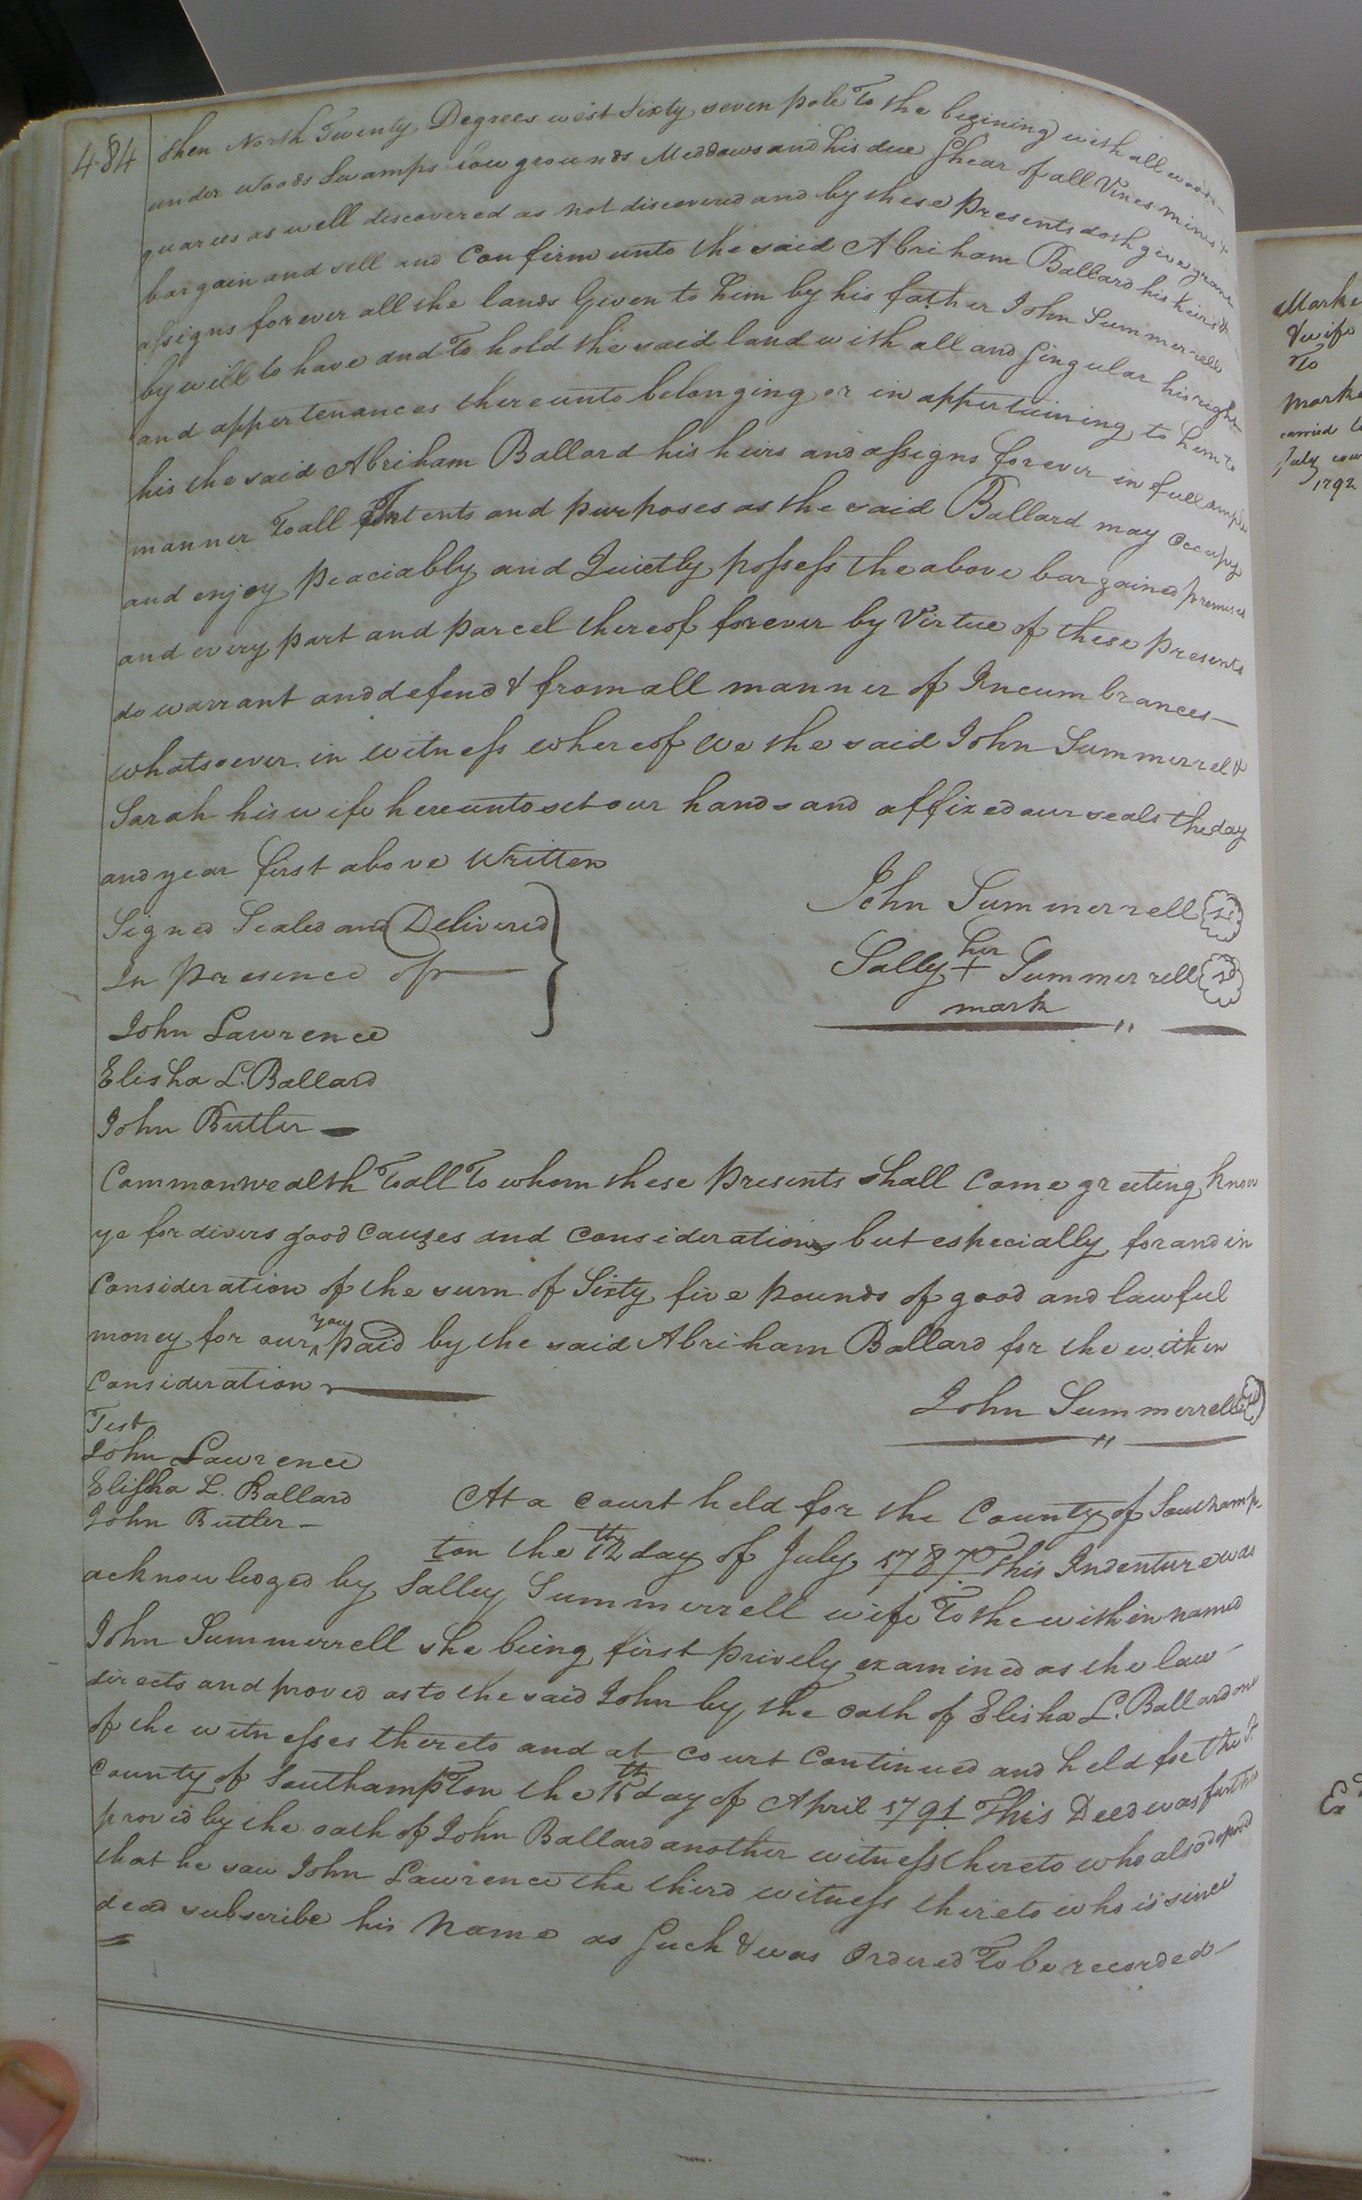 484
then North Twenty Degrees west Sixty seven pole To the begining with all woods
under woods Swamps low grounds Meddows and his due Shear of all Vines mines &
quaries as well discovered as not discovered and by these presents doth give grant
bargain and sell and Confirm unto the said Abriham Ballard his heirs &
assigns forever all the lands Given to him by his father John Summerrell
by will to have and To hold the said land with all and Singular his right
and appertenances thereunto belonging or in appertaining to him to
his the said Abriham Ballard his heirs and assigns forever in full ample
manner To all Intents and purposes as the said Ballard may Occupy
and enjoy peaciably and Quietly possess the above bargained premises
and every part and parcel thereof forever by Virtue of these presents
do warrant and defend & from all manner of Incumbrances
whatsoever in witness whereof we the said John Summerrel &
Sarah his wife hereunto set our hands and affixed our seals the day
and year first above Written
Signed Sealed and Delivered
In presence of
John Summerrell
Sally her + Summerrell
mark
John Lawrence
Elisha L. Ballard
John Butler
Commonwealth To all To whom these presents shall Come greeting know
ye for divers good Causes and Considerations but especially for and in
Consideration of the sum of Sixty five pounds of good and lawful
money for our you paid by the said Abriham Ballard for the within
Consideration
John Summerrell
Test
John Lawrence
Elisha L. Ballard
John Butler
At a Court held for the County of Southamp
ton the 12th day of July 1787 This Indenture was
acknowledged by Salley Summerrell wife To the within named
John Summerrell she being first privily examined as the law
directs and proved as to the said John by the oath of Elisha L. Ballard one
of the witnesses thereto and at Court Continued and held for the sd
County of Southampton the 15th day of April 1791 This Deed was further
proved by the oath of John Ballard another witness thereto who also deposed
that he saw John Lawrence the third witness thereto who is since
dead subscribe his Name as Such & was Ordered To be recorded
Marke
& wife
To
Marke
carried
July
1792
Ex